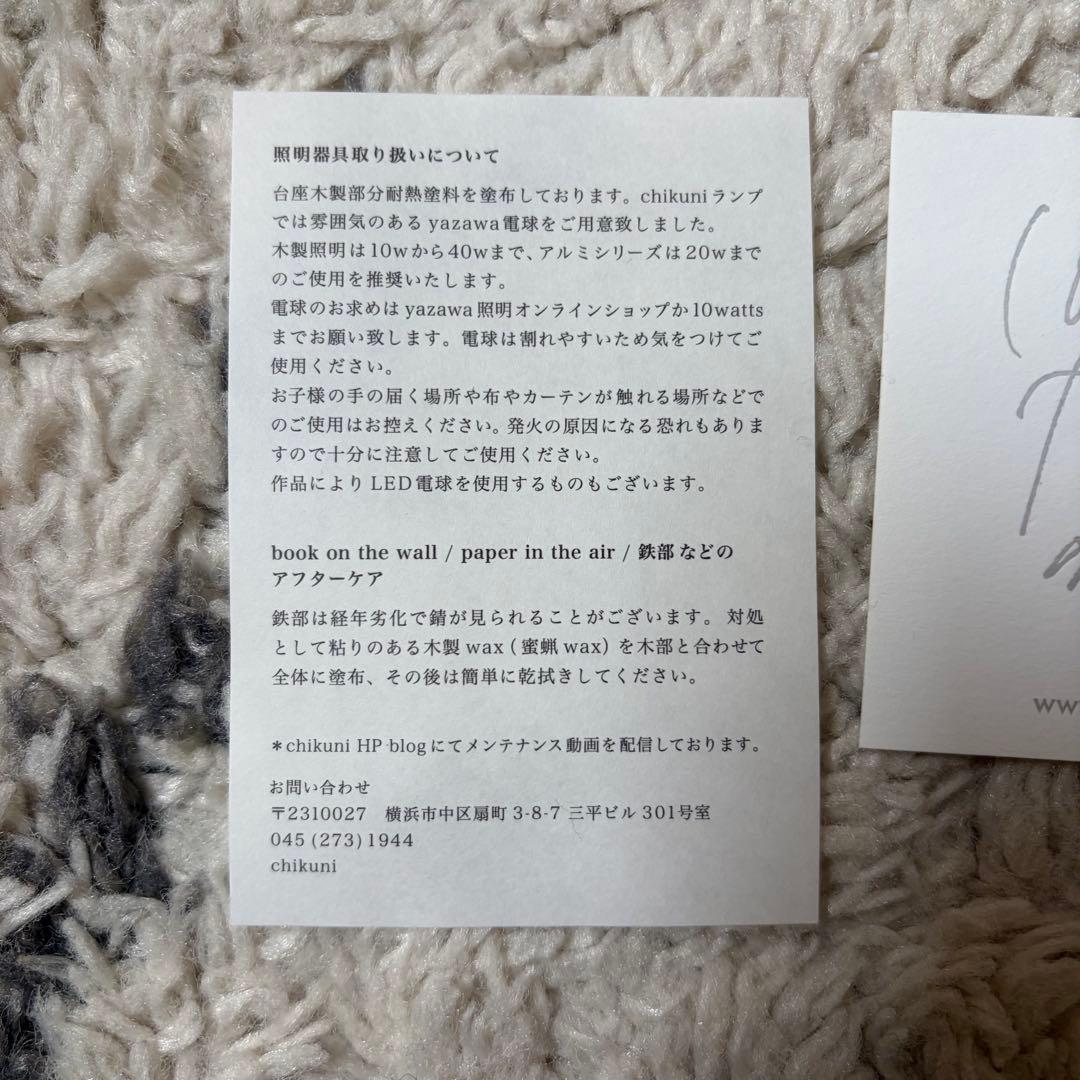 照明器具取り扱いについて
台座木製部分耐熱塗料を塗布しております。chikuniランプ
では雰囲気のあるyazawa電球をご用意致しました。
木製照明は10wから40wまで、アルミシリーズは20wまで
のご使用を推奨いたします。
電球のお求めはyazawa照明オンラインショップか10watts
までお願い致します。電球は割れやすいため気をつけてご
使用ください。
お子様の手の届く場所や布やカーテンが触れる場所などで
のご使用はお控えください。発火の原因になる恐れもありま
すので十分に注意してご使用ください。
作品によりLED電球を使用するものもございます。
book on the wall / paper in the air / 鉄部などの
アフターケア
鉄部は経年劣化で錆が見られることがございます。対処
として粘りのある木製wax(蜜蝋wax)を木部と合わせて
全体に塗布、その後は簡単に乾拭きしてください。
*chikuni HP blogにてメンテナンス動画を配信しております。
お問い合わせ
〒2310027 横浜市中区扇町3-8-7 三平ビル301号室
045(273)1944
chikuni
www